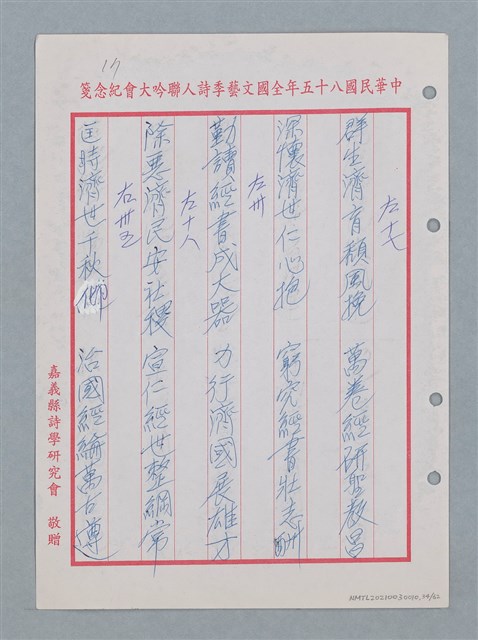 17
中華民國八十五年全國文藝季詩人聯吟大會紀念箋
群生濟育頹風挽　萬卷經研聖教昌
左十七
深懷濟世仁心抱　窮究經書壯志酬
左卅
勤讀經書成大器　力行濟國展雄才
左十八
除惡濟民安社稷　宣仁經世整綱常
左卅五
匡時濟世千秋仰　治國經綸萬古遵
嘉義縣詩學研究會　敬贈